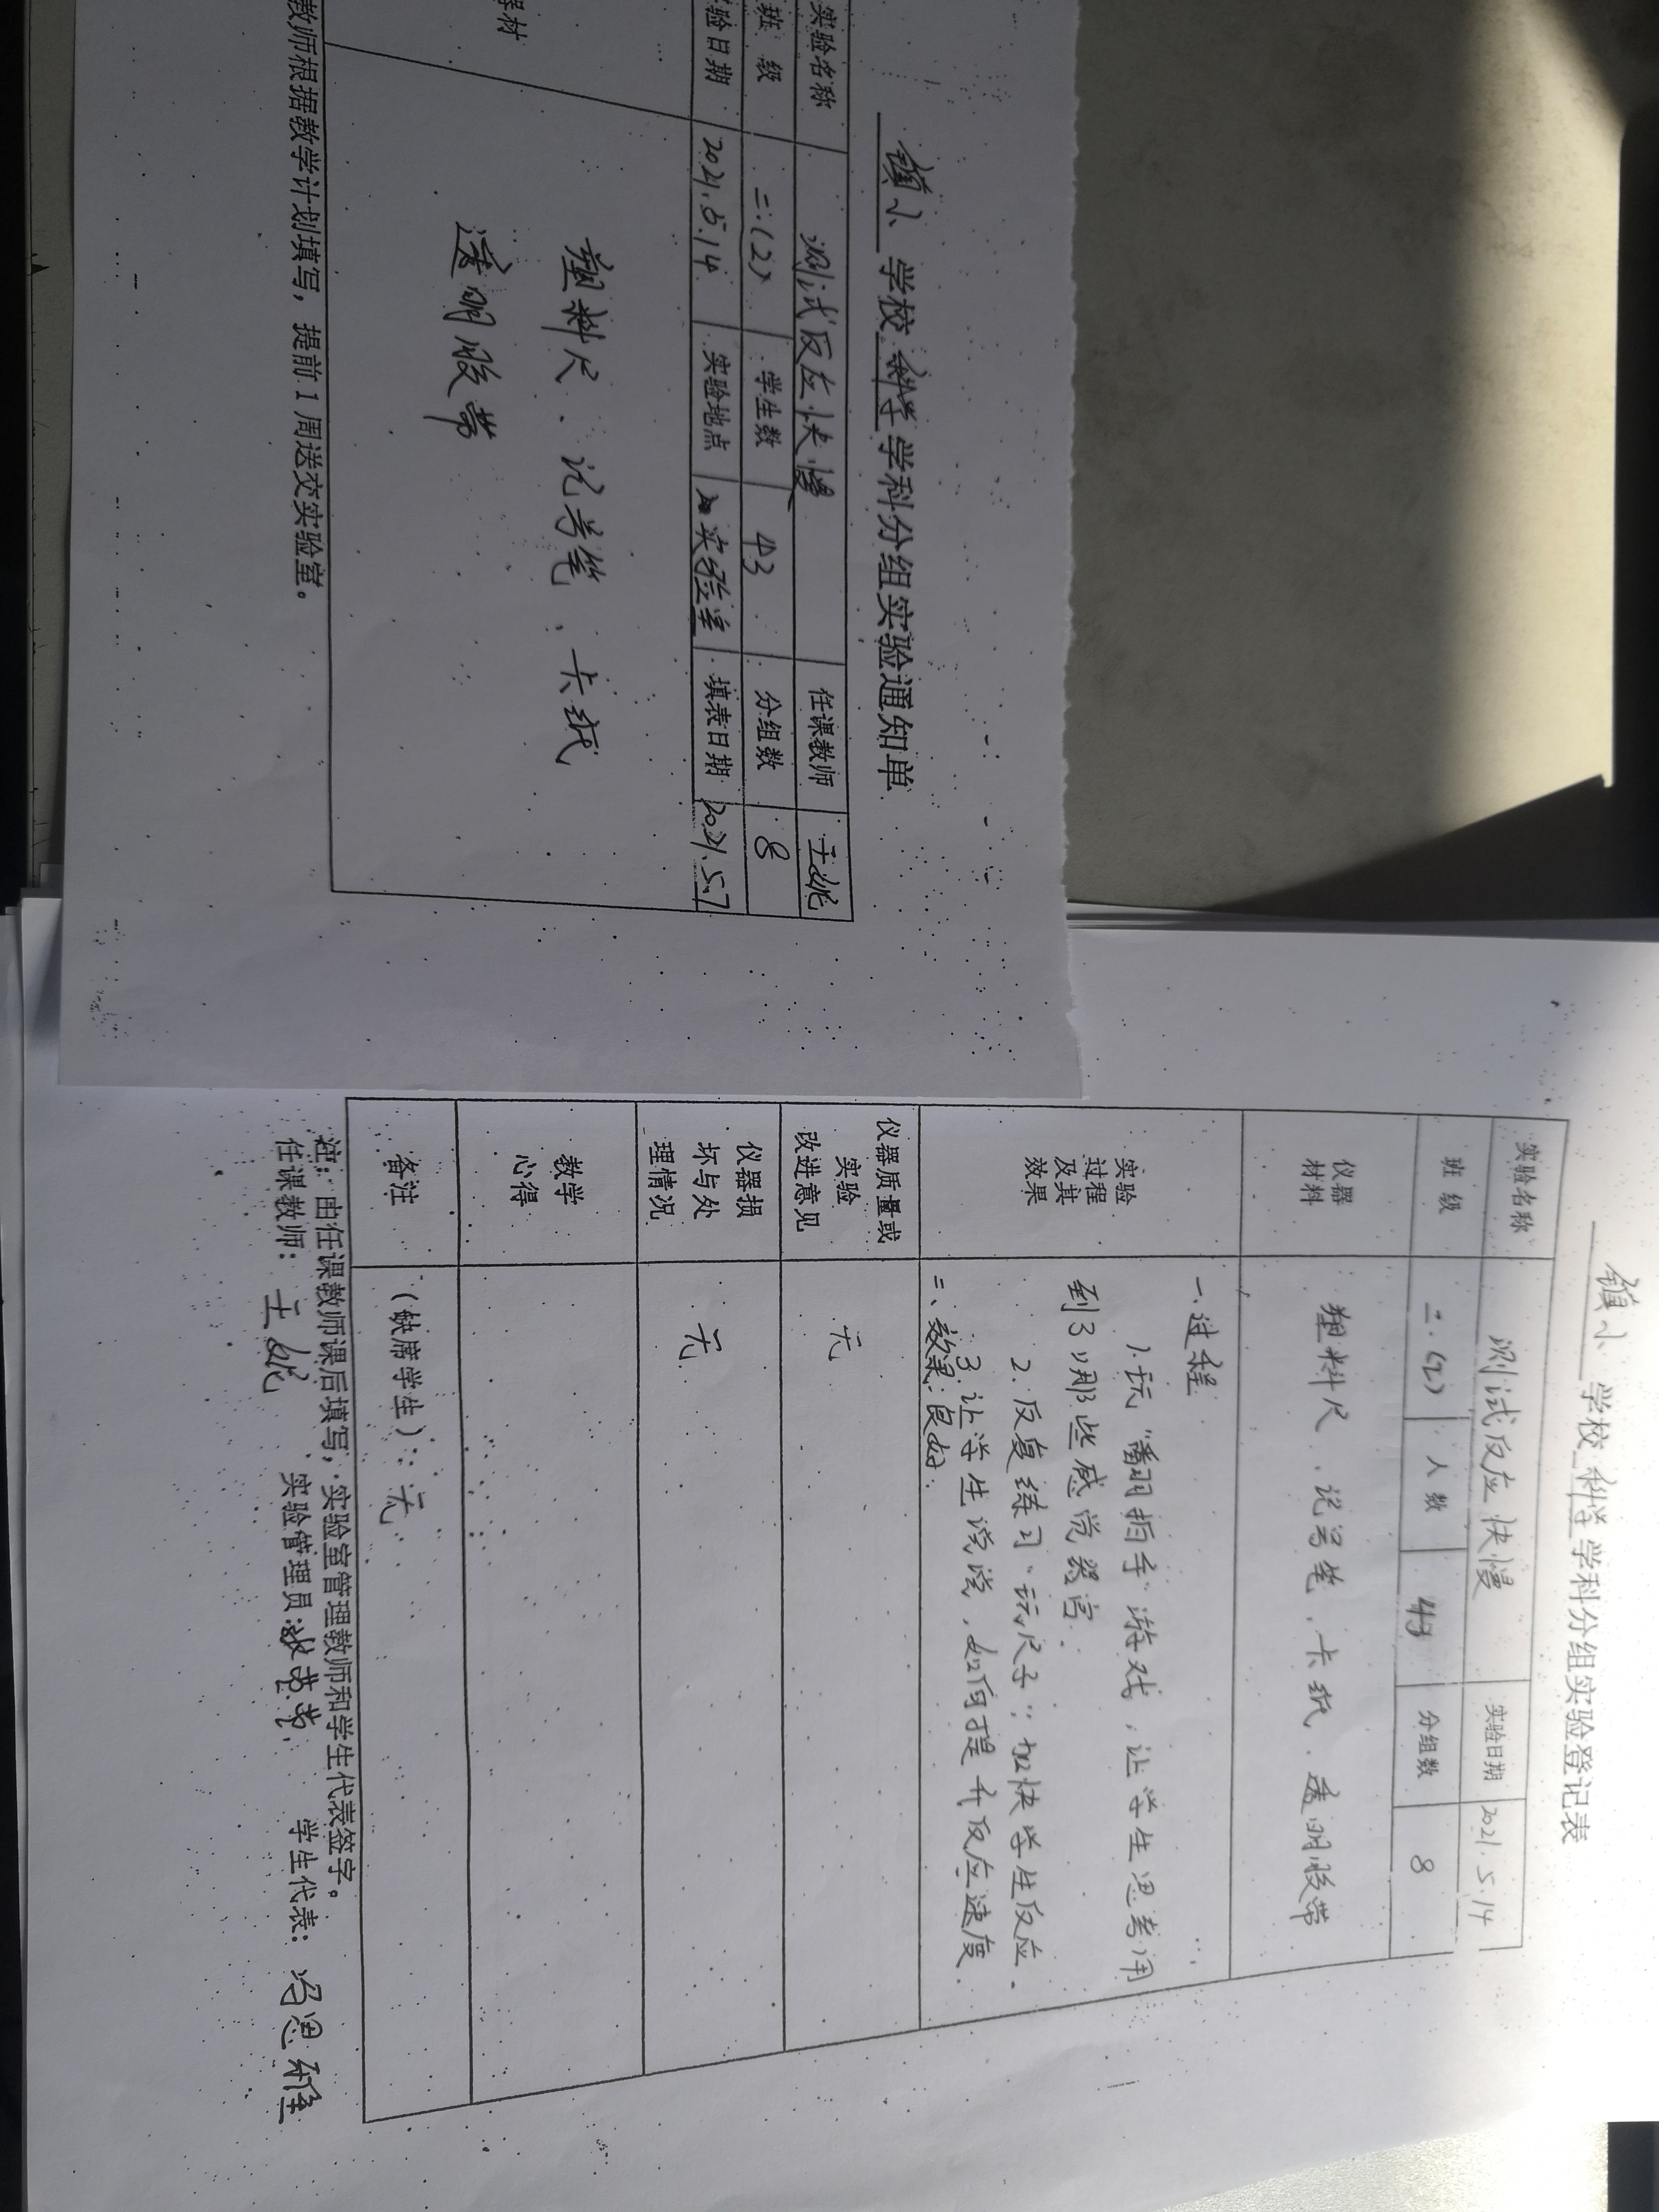 镇小 学校 科学 学科分组实验通知单
实验名称 测试反应快慢 任课教师 王姚
班 级 二.(2) 学生数 43 分组数 8
验日期 2021.5.14 实验地点 实验室 填表日期 2021.5.7
器材
塑料尺、记号笔、卡纸
透明胶带
教师根据教学计划填写，提前1周送交实验室。
镇小 学校 科学 学科分组实验登记表
实验名称 测试反应快慢 实验日期 2021.5.14
班 级 二.(2) 人数 43 分组数 8
仪器
材料
塑料尺、记号笔、卡纸、透明胶带
实验
过程
及其
效果
一、过程
1.玩"翻掐手"游戏，让学生思考用
到了哪些感觉器官.
2.反复练习"玩尺子"，加快学生反应.
3.让学生说说，如何提升反应速度.
二、效果：良好.
仪器质量或
实验
改进意见
无
仪器损
坏与处
理情况
无
教学
心得
备注
（缺席学生）：无
注：由任课教师课后填写，实验室管理教师和学生代表签字。
任课教师： 王姚 实验管理员： 学生代表： 冯思雅